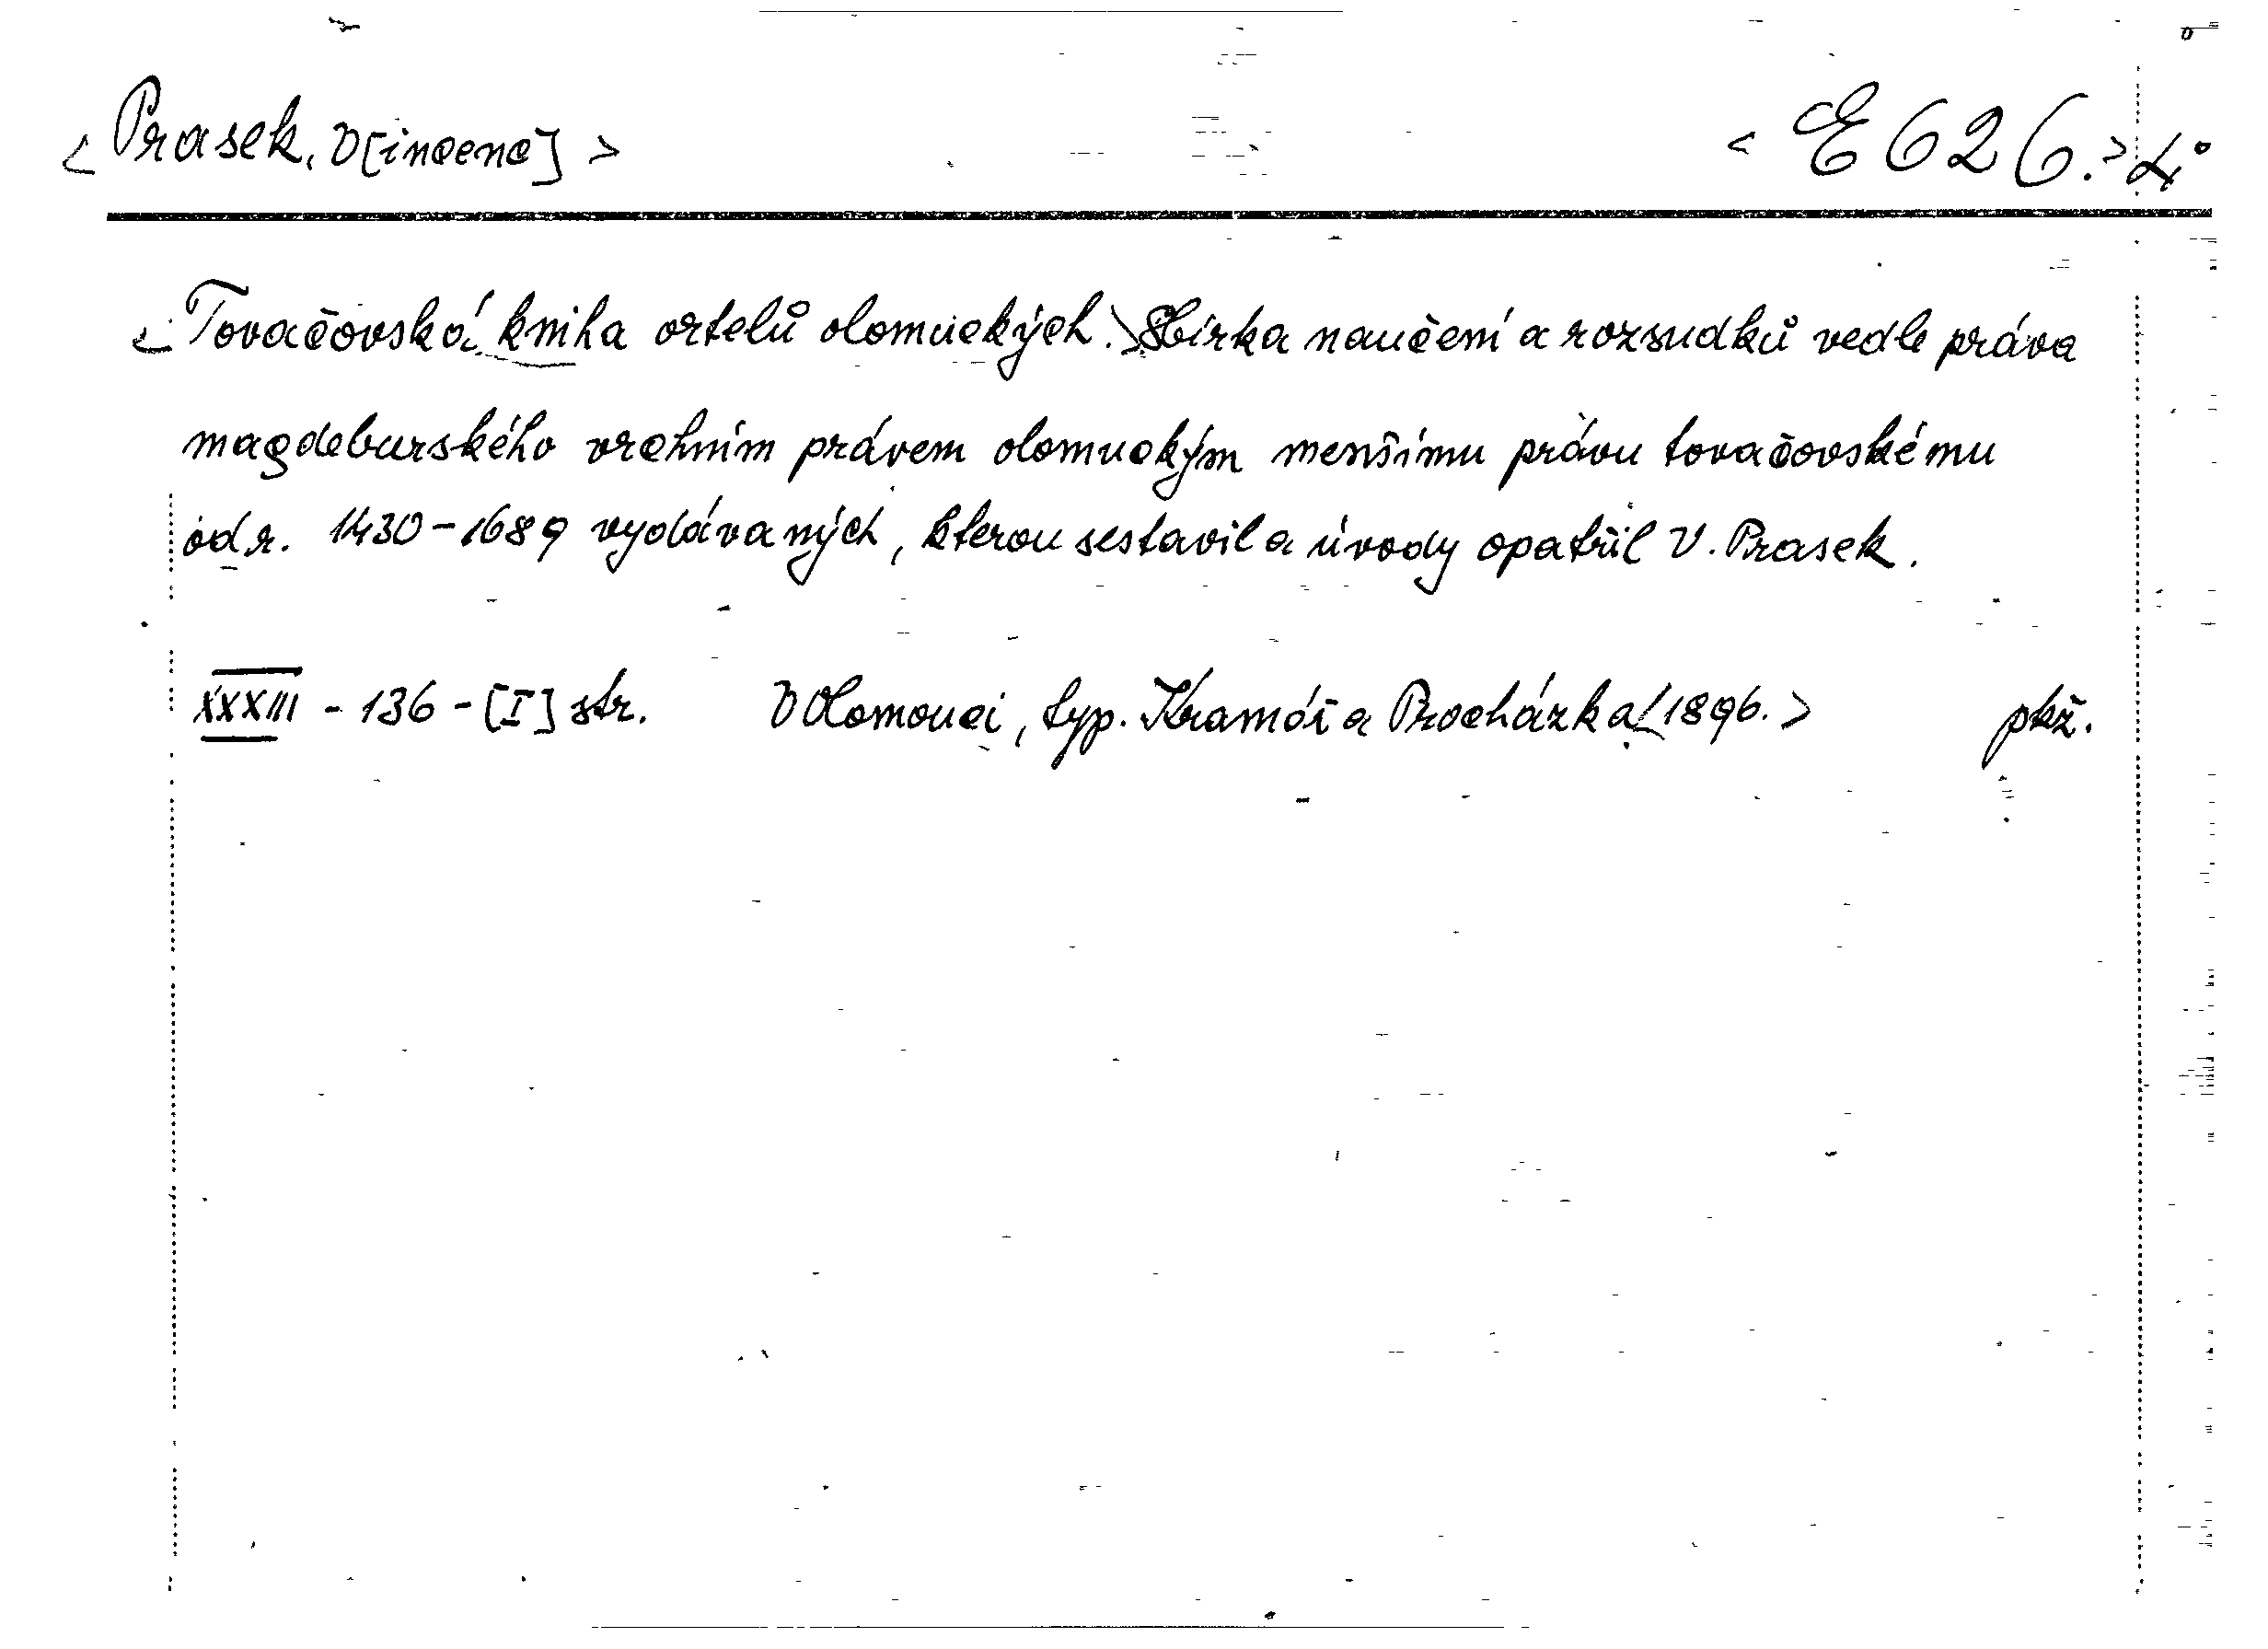 <Prasek, V[incenc]> <E 626.> 4°
<Tovačovská kniha ortelů olomuckých.> Sbírka naučení a rozsudků vedle práva
magdeburského vrchním právem olomuckým menšímu právu tovačovskému
od r. 1430-1689 vydávaných, kterou sestavil a úvody opatřil V. Prasek.
XXXIII - 136 - [I] str. V Olomouci, typ. Kramář a Procházka <1896.> pkž.